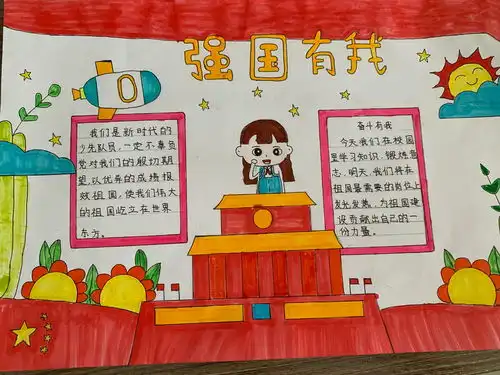 强国有我
我们是新时代的
少先队员,一定不辜负
党对我们的殷切期
望,以优异的成绩报
效祖国,使我们伟大
的祖国屹立在世界
东方。
奋斗有我
今天我们在校园
里学习知识,锻炼意
志,明天,我们将在
祖国最需要的岗位上
发光发热,为祖国建
设贡献出自己的一
份力量。